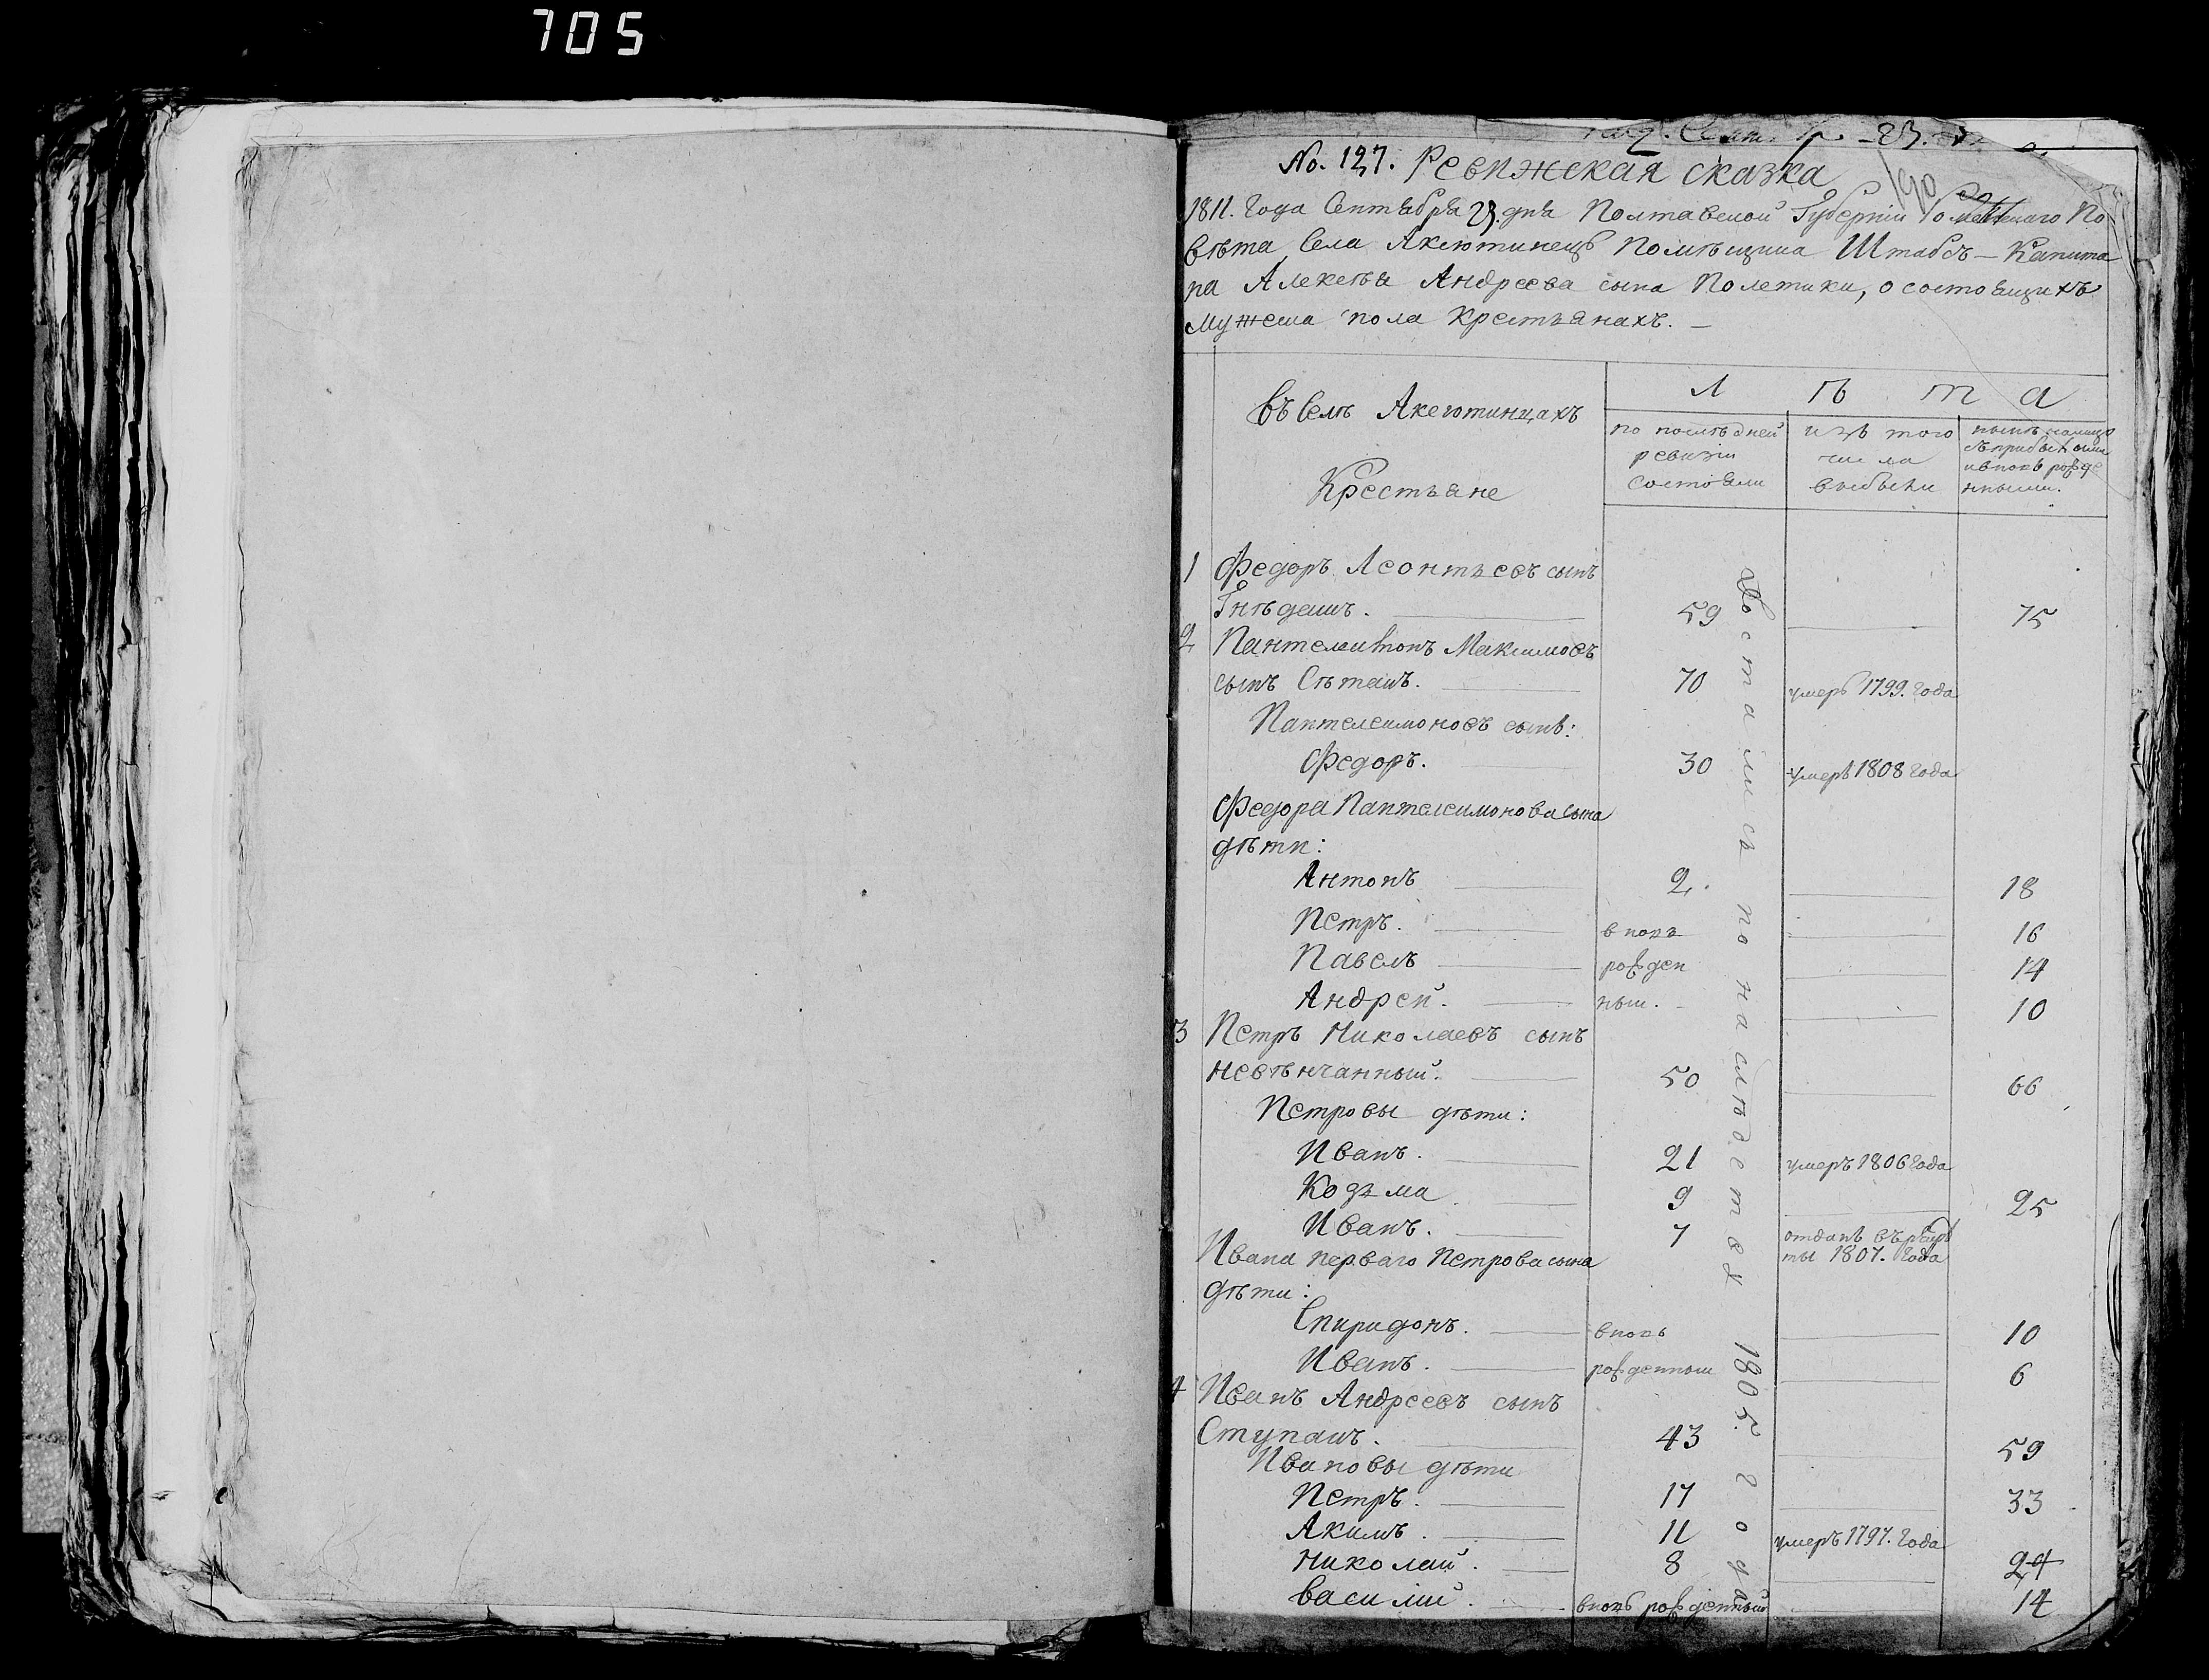 705
No. 127. Ревижская сказка
190
1811. Года Сентября 23. дня Полтавской Губернии Роменскаго По
вѣта Села Аксютинецъ Помѣщика Штабсъ-Капита
на Алексѣя Андреева сына Полетики, о состоящихъ
мужеска пола крестьянахъ. —
Въ Селѣ Аксютинцахъ
Крестьяне
Л ѣ т а
по послѣдней
ревизии
состояли
изъ того
числа
выбыли
нынѣ налицо
съ прибылыми
и вновь рожде
нными.
Достались по наследству 1805. года
1 Федоръ Леонтьевъ сынъ
Гнѣдашъ. 59 — 75
2 Пантелеимонъ Максимовъ
сынъ Сѣташъ. 70 умеръ 1799. Года
Пантелеимоновъ сынъ:
Федоръ. 30 умеръ 1808 Года
Федора Пантелеимонова сына
дѣти:
Антонъ 2. — 18
Петръ. вновь — 16
Павелъ рожден — 14
Андрей. ныи. — 10
3 Петръ Николаевъ сынъ
невѣнчанный. 50 — 66
Петровы дѣти:
Иванъ. 21 умеръ 1806 Года
Козьма 9 — 25
Иванъ. 7 отданъ въ рекру
ты 1807. Года
Ивана перваго Петрова сына
дѣти:
Спиридонъ. вновь — 10
Иванъ. рожденныи — 6
4 Иванъ Андреевъ сынъ
Ступашъ. 43 — 59
Ивановы дѣти
Петръ. 17 — 33
Акимъ. 11 умеръ 1797. Года
Николай. 8 — 24
Василий. вновь рожденный — 14